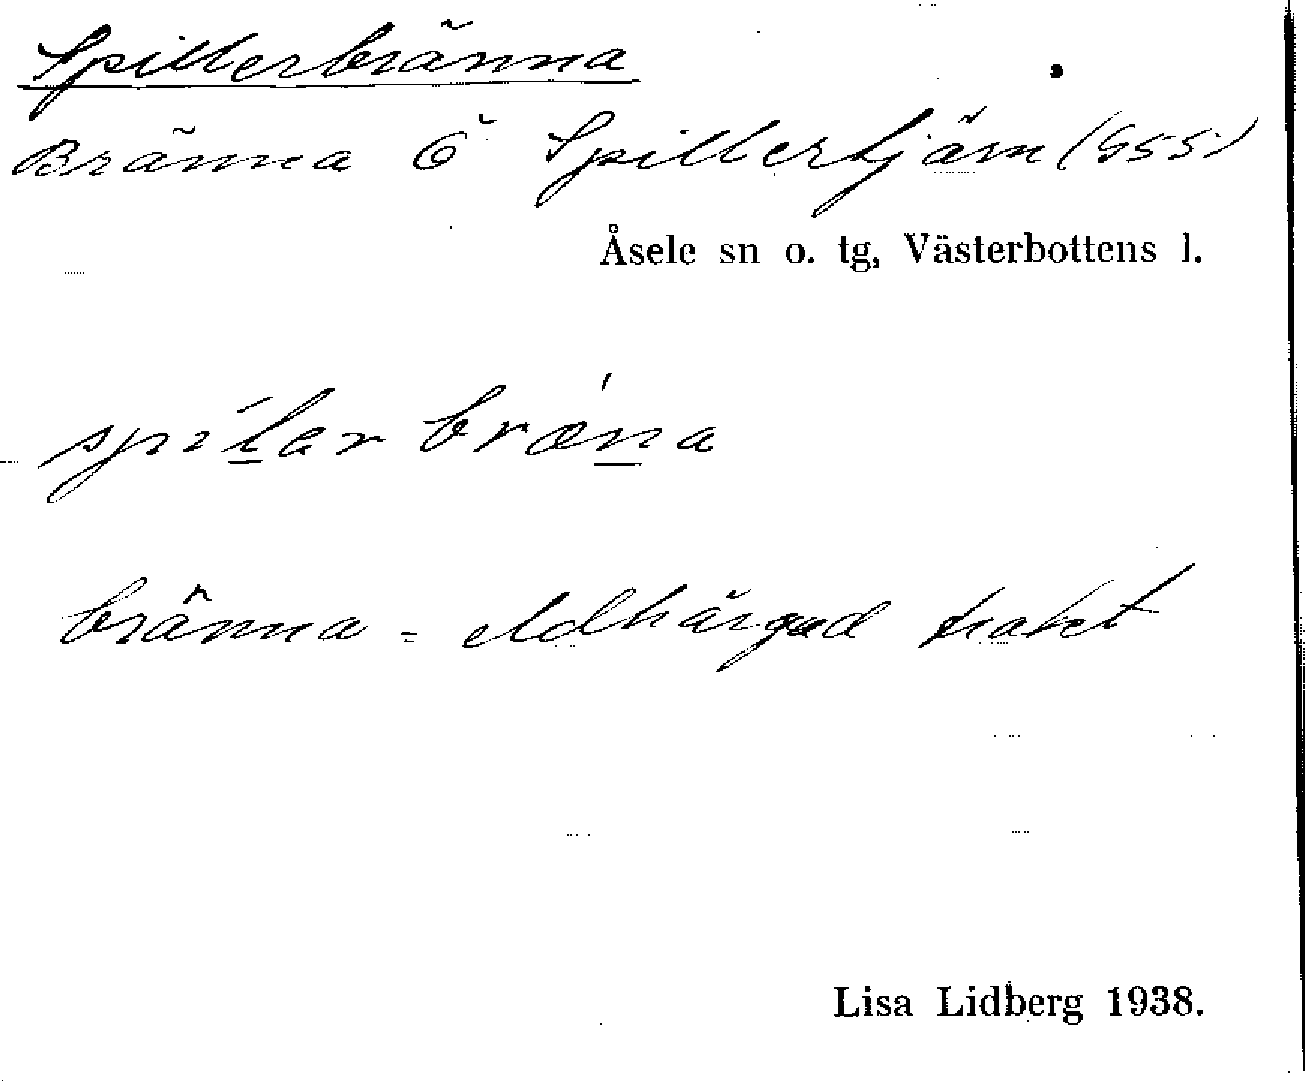 Spillerbränna
Bränna Ö Spillertjärn (G55)
Åsele sn o. tg, Västerbottens l.
spılarbræna
bränna = eldhärgad trakt
Lisa Lidberg 1938.